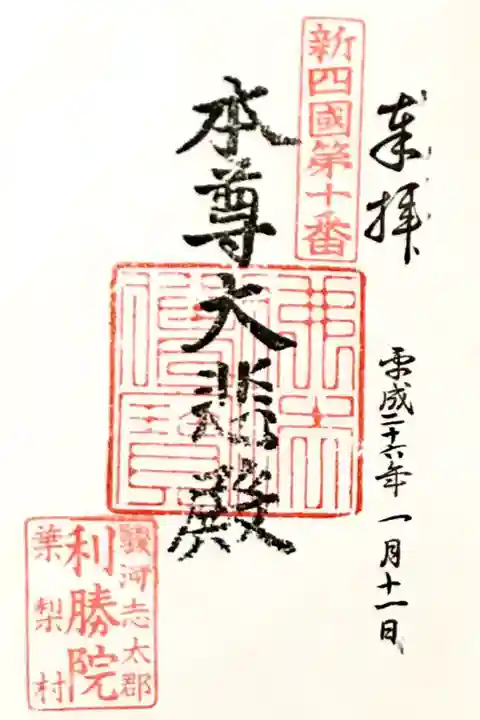 奉拝
平成二十六年 一月十一日
新四國第十番
本尊大悲殿
駿河志太郡
利勝院
葉梨村